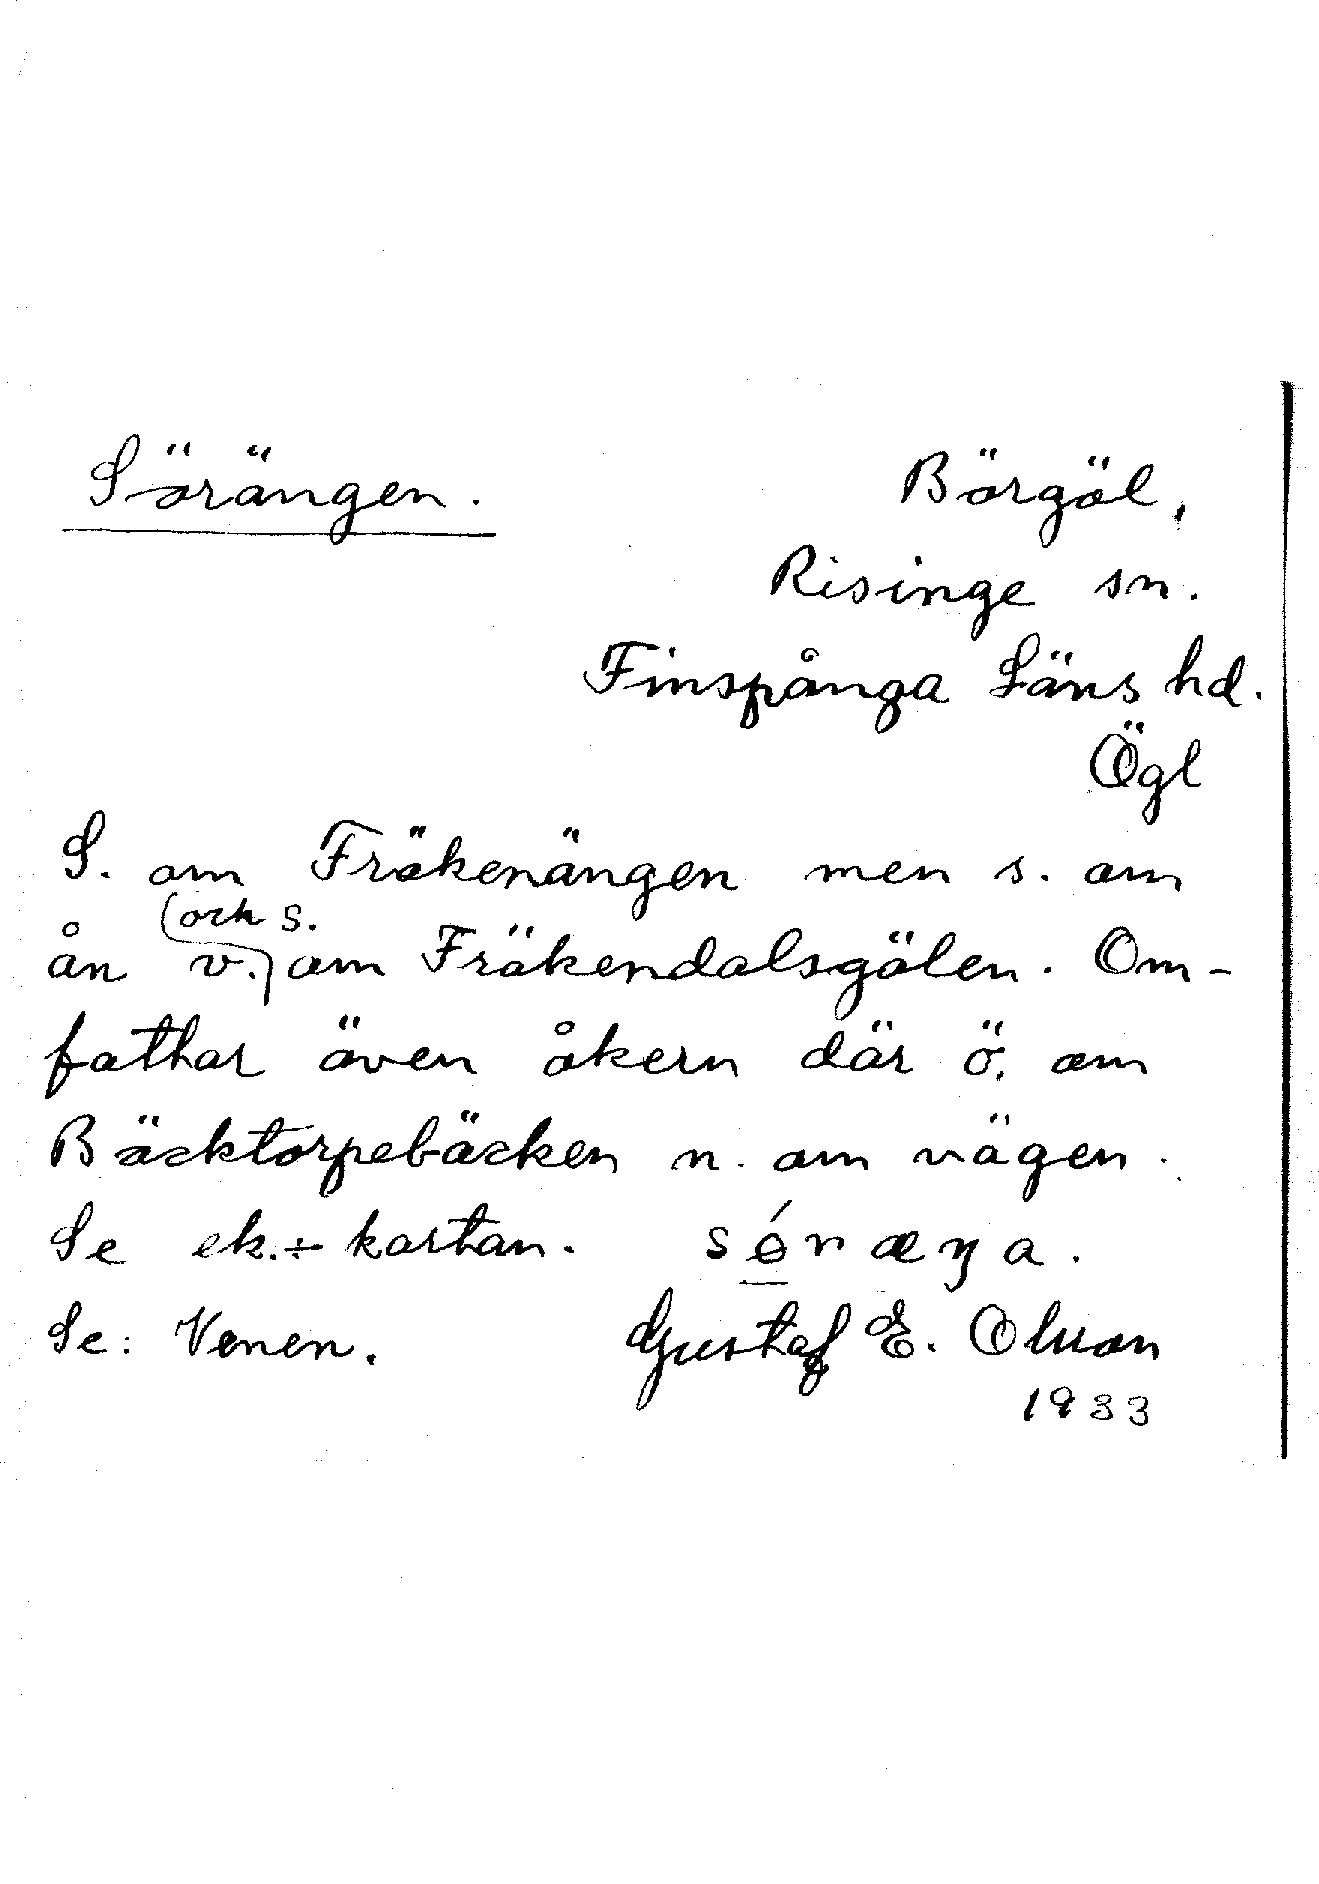 Sörängen.
Börgöl,
Risinge sn.
Finspånga Läns hd.
Ögl
S. om Fräkenängen men s. om
ån v. (och s.) om Fräkendalsgölen. Om-
fattar även åkern där ö. om
Bäcktorpebäcken n. om vägen.
Se ek.÷kartan. sǿræŋa.
Se: Venen. Gustaf E. Olsson
1933